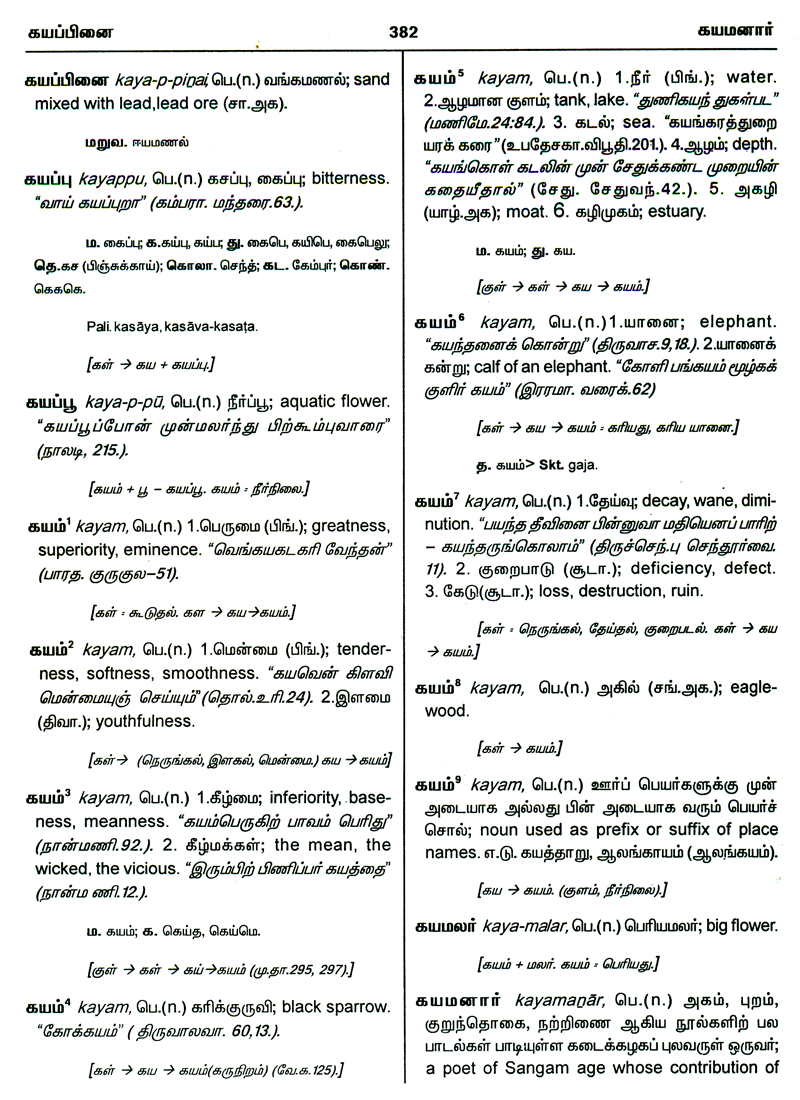 கயப்பினை
382
கயமனார்
கயப்பினை kaya-p-piṉai, பெ.(n.) வங்கமணல்; sand
mixed with lead,lead ore (சா.அக).
மறுவ. ஈயமணல்
கயப்பு kayappu, பெ.(n.) கசப்பு, கைப்பு; bitterness.
“வாய் கயப்புறா” (கம்பரா. மந்தரை.63.).
ம. கைப்பு; க.கய்பு, கய்ப; து. கைபெ, கயிபெ, கைபெலு;
தெ.கச (பிஞ்சுக்காய்); கொலா. செந்த்; கட. கேம்புர்; கொண்.
கெககெ.
Pali. kasāya, kasāva-kasaṭa.
[கள் → கய + கயப்பு.]
கயப்பூ kaya-p-pū, பெ.(n.) நீர்ப்பூ; aquatic flower.
“கயப்பூப்போன் முன்மலர்ந்து பிற்கூம்புவாரை”
(நாலடி, 215.).
[கயம் + பூ – கயப்பூ. கயம் = நீர்நிலை.]
கயம்¹ kayam, பெ.(n.) 1.பெருமை (பிங்.); greatness,
superiority, eminence. “வெங்கயகடகரி வேந்தன்”
(பாரத. குருகுல–51).
[கள் = கூடுதல். கள → கய→கயம்.]
கயம்² kayam, பெ.(n.) 1.மென்மை (பிங்.); tender-
ness, softness, smoothness. “கயவென் கிளவி
மென்மையுஞ் செய்யும்”(தொல்.உரி.24). 2.இளமை
(திவா.); youthfulness.
[கள்→ (நெருங்கல், இளகல், மென்மை.) கய →கயம்]
கயம்³ kayam, பெ.(n.) 1.கீழ்மை; inferiority, base-
ness, meanness. “கயம்பெருகிற் பாவம் பெரிது”
(நான்மணி.92.). 2. கீழ்மக்கள்; the mean, the
wicked, the vicious. “இரும்பிற் பிணிப்பர் கயத்தை”
(நான்ம ணி.12.).
ம. கயம்; க. கெய்த, கெய்மெ.
[குள் → கள் → கய்→கயம் (மு.தா.295, 297).]
கயம்⁴ kayam, பெ.(n.) கரிக்குருவி; black sparrow.
“கோக்கயம்” ( திருவாலவா. 60,13.).
[கள் → கய → கயம்(கருநிறம்) (வே.க.125).]
கயம்⁵ kayam, பெ.(n.) 1.நீர் (பிங்.); water.
2.ஆழமான குளம்; tank, lake. “துணிகயந் துகள்பட”
(மணிமே.24:84.). 3. கடல்; sea. “கயங்கரத்துறை
யரக் கரை”(உபதேசகா.விபூதி.201.). 4.ஆழம்; depth.
“கயங்கொள் கடலின் முன் சேதுக்கண்ட முறையின்
கதையீதால்” (சேது. சேதுவந்.42.). 5. அகழி
(யாழ்.அக); moat. 6. கழிமுகம்; estuary.
ம. கயம்; து. கய.
[குள் → கள் → கய → கயம்.]
கயம்⁶ kayam, பெ.(n.)1.யானை; elephant.
“கயந்தனைக் கொன்று” (திருவாச.9,18.). 2.யானைக்
கன்று; calf of an elephant. “கோளி பங்கயம் மூழ்கக்
குளிர் கயம்” (இரரமா. வரைக்.62)
[கள் → கய → கயம் = கரியது, கரிய யானை.]
த. கயம்> Skt. gaja.
கயம்⁷ kayam, பெ.(n.) 1.தேய்வு; decay, wane, dimi-
nution. “பயந்த தீவினை பின்னுவா மதியெனப் பாரிற்
– கயந்தருங்கொலாம்” (திருச்செந்.பு செந்தூர்வை.
11). 2. குறைபாடு (சூடா.); deficiency, defect.
3. கேடு(சூடா.); loss, destruction, ruin.
[கள் = நெருங்கல், தேய்தல், குறைபடல். கள் → கய
→ கயம்.]
கயம்⁸ kayam, பெ.(n.) அகில் (சங்.அக.); eagle-
wood.
[கள் → கயம்.]
கயம்⁹ kayam, பெ.(n.) ஊர்ப் பெயர்களுக்கு முன்
அடையாக அல்லது பின் அடையாக வரும் பெயர்ச்
சொல்; noun used as prefix or suffix of place
names. எ.டு. கயத்தாறு, ஆலங்காயம் (ஆலங்கயம்).
[கய → கயம். (குளம், நீர்நிலை).]
கயமலர் kaya-malar, பெ.(n.) பெரியமலர்; big flower.
[கயம் + மலர். கயம் = பெரியது.]
கயமனார் kayamaṉār, பெ.(n.) அகம், புறம்,
குறுந்தொகை, நற்றிணை ஆகிய நூல்களிற் பல
பாடல்கள் பாடியுள்ள கடைக்கழகப் புலவருள் ஒருவர்;
a poet of Sangam age whose contribution of